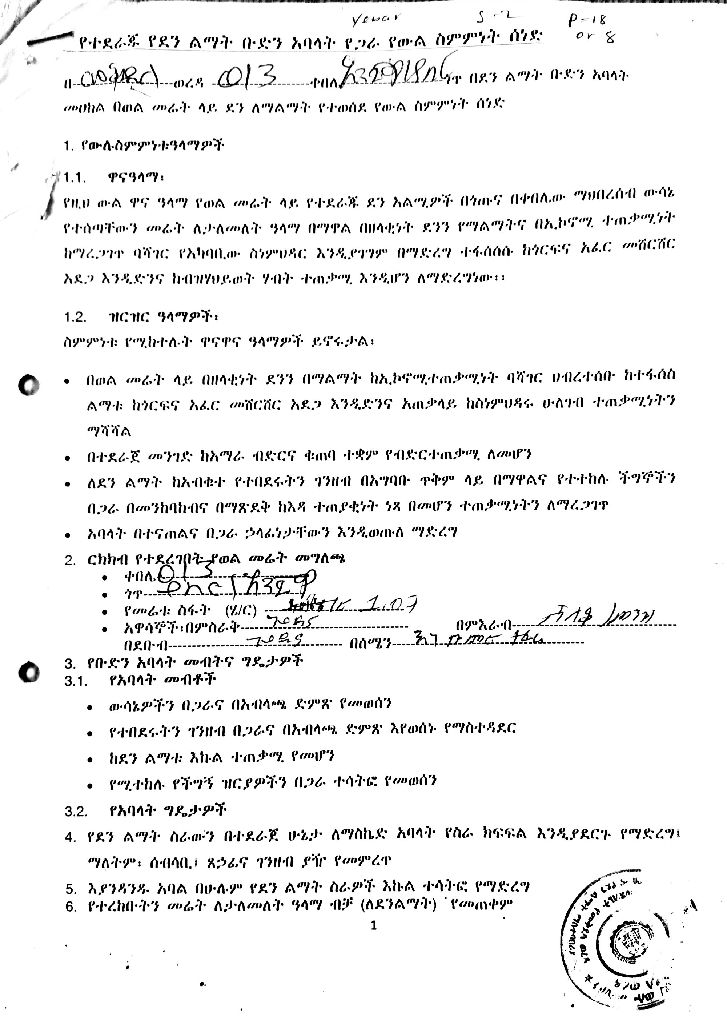 S-2 P-18
or 8
የተደራጁ የደን ልማት ቡድን አባላት የጋራ የውል ስምምነት ሰነድ
በ ወረዳ 013 ቀበሌ ጎጥ በደን ልማት ቡድን አባላት
መሀከል በወል መሬት ላይ ደን ለማልማት የተወሰደ የውል ስምምነት ሰነድ
1. የውሉስምምነቱዓላማዎች
1.1. ዋናዓላማ፡
የዚህ ውል ዋና ዓላማ የወል መሬት ላይ የተደራጁ ደን አልሚዎች በጎጡና በቀበሌው ማህበረሰብ ውሳኔ
የተሰጣቸውን መሬት ለታለመለት ዓላማ በማዋል በዘላቂነት ደንን የማልማትና በኢኮኖሚ ተጠቃሚነት
ከማረጋገጥ ባሻገር የአካባቢው ስነምህዳር እንዲያገግም በማድረግ ተፋሰሰሱ ከጎርፍና አፈር መሸርሸር
አደጋ እንዲድንና ከብዝሃህይወት ሃብት ተጠቃሚ እንዲሆን ለማድረግነው፡፡
1.2. ዝርዝር ዓላማዎች፡
ስምምነቱ የሚከተሉት ዋናዋና ዓላማዎች ይኖሩታል፡
• በወል መሬት ላይ በዘላቂነት ደንን በማልማት ከኢኮኖሚተጠቃሚነት ባሻገር ሀብረተሰቡ ከተፋሰስ
ልማቱ ከጎርፍና አፈር መሸርሸር አደጋ እንዲድንና አጠቃላይ ከስነምህዳሩ ሁለገብ ተጠቃሚነትን
ማሻሻል
• በተደራጀ መንገድ ከአማራ ብድርና ቁጠባ ተቋም የብድርተጠቃሚ ለመሆን
• ለደን ልማት ከአብቁተ የተበደሩትን ገንዘብ በአግባቡ ጥቅም ላይ በማዋልና የተተከሉ ችግኞችን
በጋራ በመንከባከብና በማጽደቅ ከእዳ ተጠያቂነት ነጻ በመሆን ተጠቃሚነትን ለማረጋገጥ
• አባላት በተናጠልና በጋራ ኃላፊነታቸውን እንዲወጡ ማድረግ
2. ርክክብ የተደረገበት የወል መሬት መግለጫ
• ቀበሌ 013
• ጎጥ
• የመሬቱ ስፋት (ሄ/ር) 1.07
• አዋሳኞች፡በምስራቅ በምእራብ
በደቡብ በሰሜን
3. የቡድን አባላት መብትና ግዴታዎች
3.1. የአባላት መብቶች
• ውሳኔዎችን በጋራና በአብላጫ ድምጽ የመወሰን
• የተበደሩትን ገንዘብ በጋራና በአብላጫ ድምጽ እየወሰኑ የማስተዳደር
• ከደን ልማቱ እኩል ተጠቃሚ የመሆን
• የሚተከሉ የችግኝ ዝርያዎችን በጋራ ተሳትፎ የመወሰን
3.2. የአባላት ግዴታዎች
4. የደን ልማት ስራውን በተደራጀ ሁኔታ ለማስኬድ አባላት የስራ ክፍፍል እንዲያደርጉ የማድረግ፤
ማለትም፡ ሰብሳቢ፤ ጸኃፊና ገንዘብ ያዥ የመምረጥ
5. እያንዳንዱ አባል በሁሉም የደን ልማት ስራዎች እኩል ተሳትፎ የማድረግ
6. የተረከቡትን መሬት ለታለመለት ዓላማ ብቻ (ለደንልማት) የመጠቀም
1